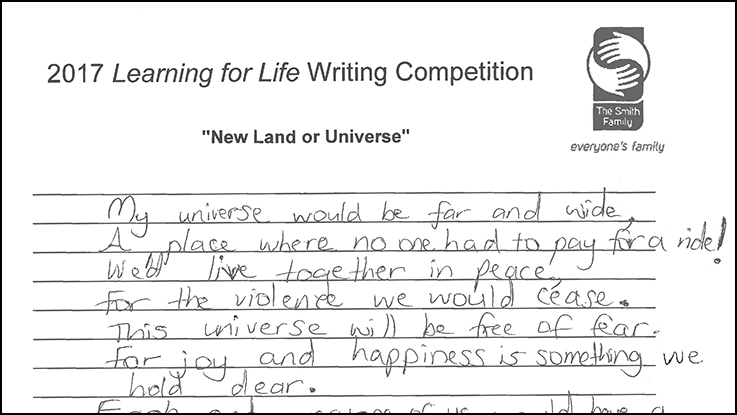 2017 Learning for Life Writing Competition
The Smith
Family
everyone's family
"New Land or Universe"
My universe would be far and wide,
A place where no one had to pay for a ride!
We'd live together in peace,
For the violence we would cease.
This universe will be free of fear.
For joy and happiness is something we
hold dear.